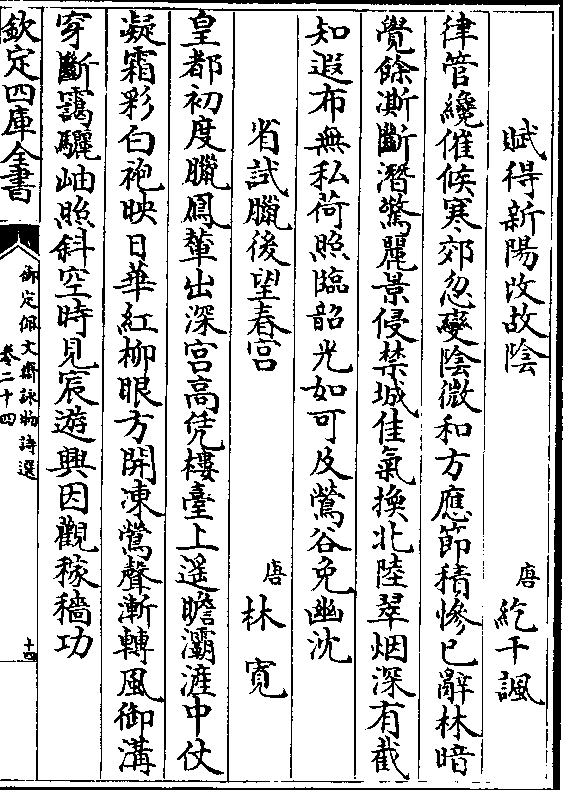 賦得新陽改故陰
唐 紇干諷
律管纔催候寒郊忽變陰微和方應節積慘已辭林暗
覺餘澌斷潛驚麗景侵禁城佳氣換北陸翠烟深有截
知遐布無私荷照臨韶光如可及鶯谷免幽沈
省試臘後望春宫
唐 林寬
皇都初度臘鳳輦出深宫高凭樓臺上遥瞻灞滻中仗
凝霜彩白袍映日華紅柳眼方開凍鶯聲漸轉風御溝
穿斷靄驪岫照斜空時見宸遊興因觀稼穡功
欽定四庫全書
御定佩文齋詠物詩選
卷二十四
十四